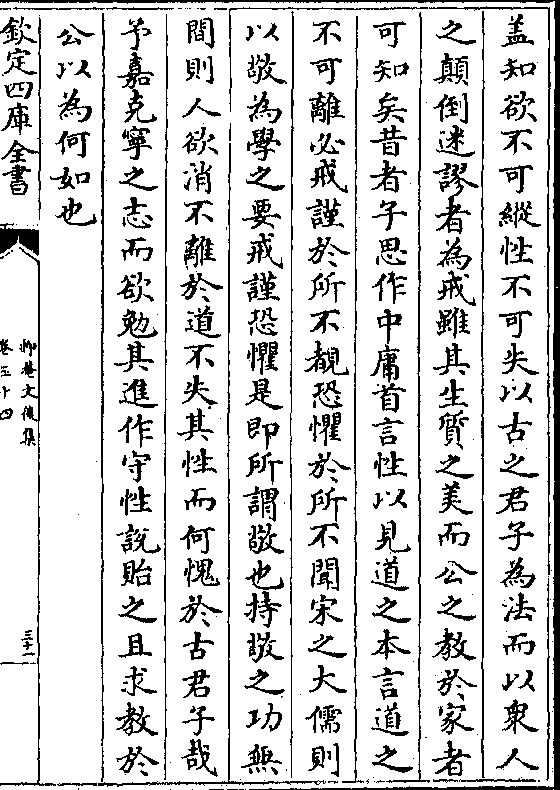 盖知欲不可縱性不可失以古之君子為法而以衆人
之顛倒迷謬者為戒雖其生質之美而公之教於家者
可知矣昔者子思作中庸首言性以見道之本言道之
不可離必戒謹於所不覩恐懼於所不聞宋之大儒則
以敬為學之要戒謹恐懼是即所謂敬也持敬之功無
間則人欲消不離於道不失其性而何愧於古君子哉
予嘉克寧之志而欲勉其進作守性說貽之且求教於
公以為何如也
欽定四庫全書
抑菴文後集
卷三十四
三十一